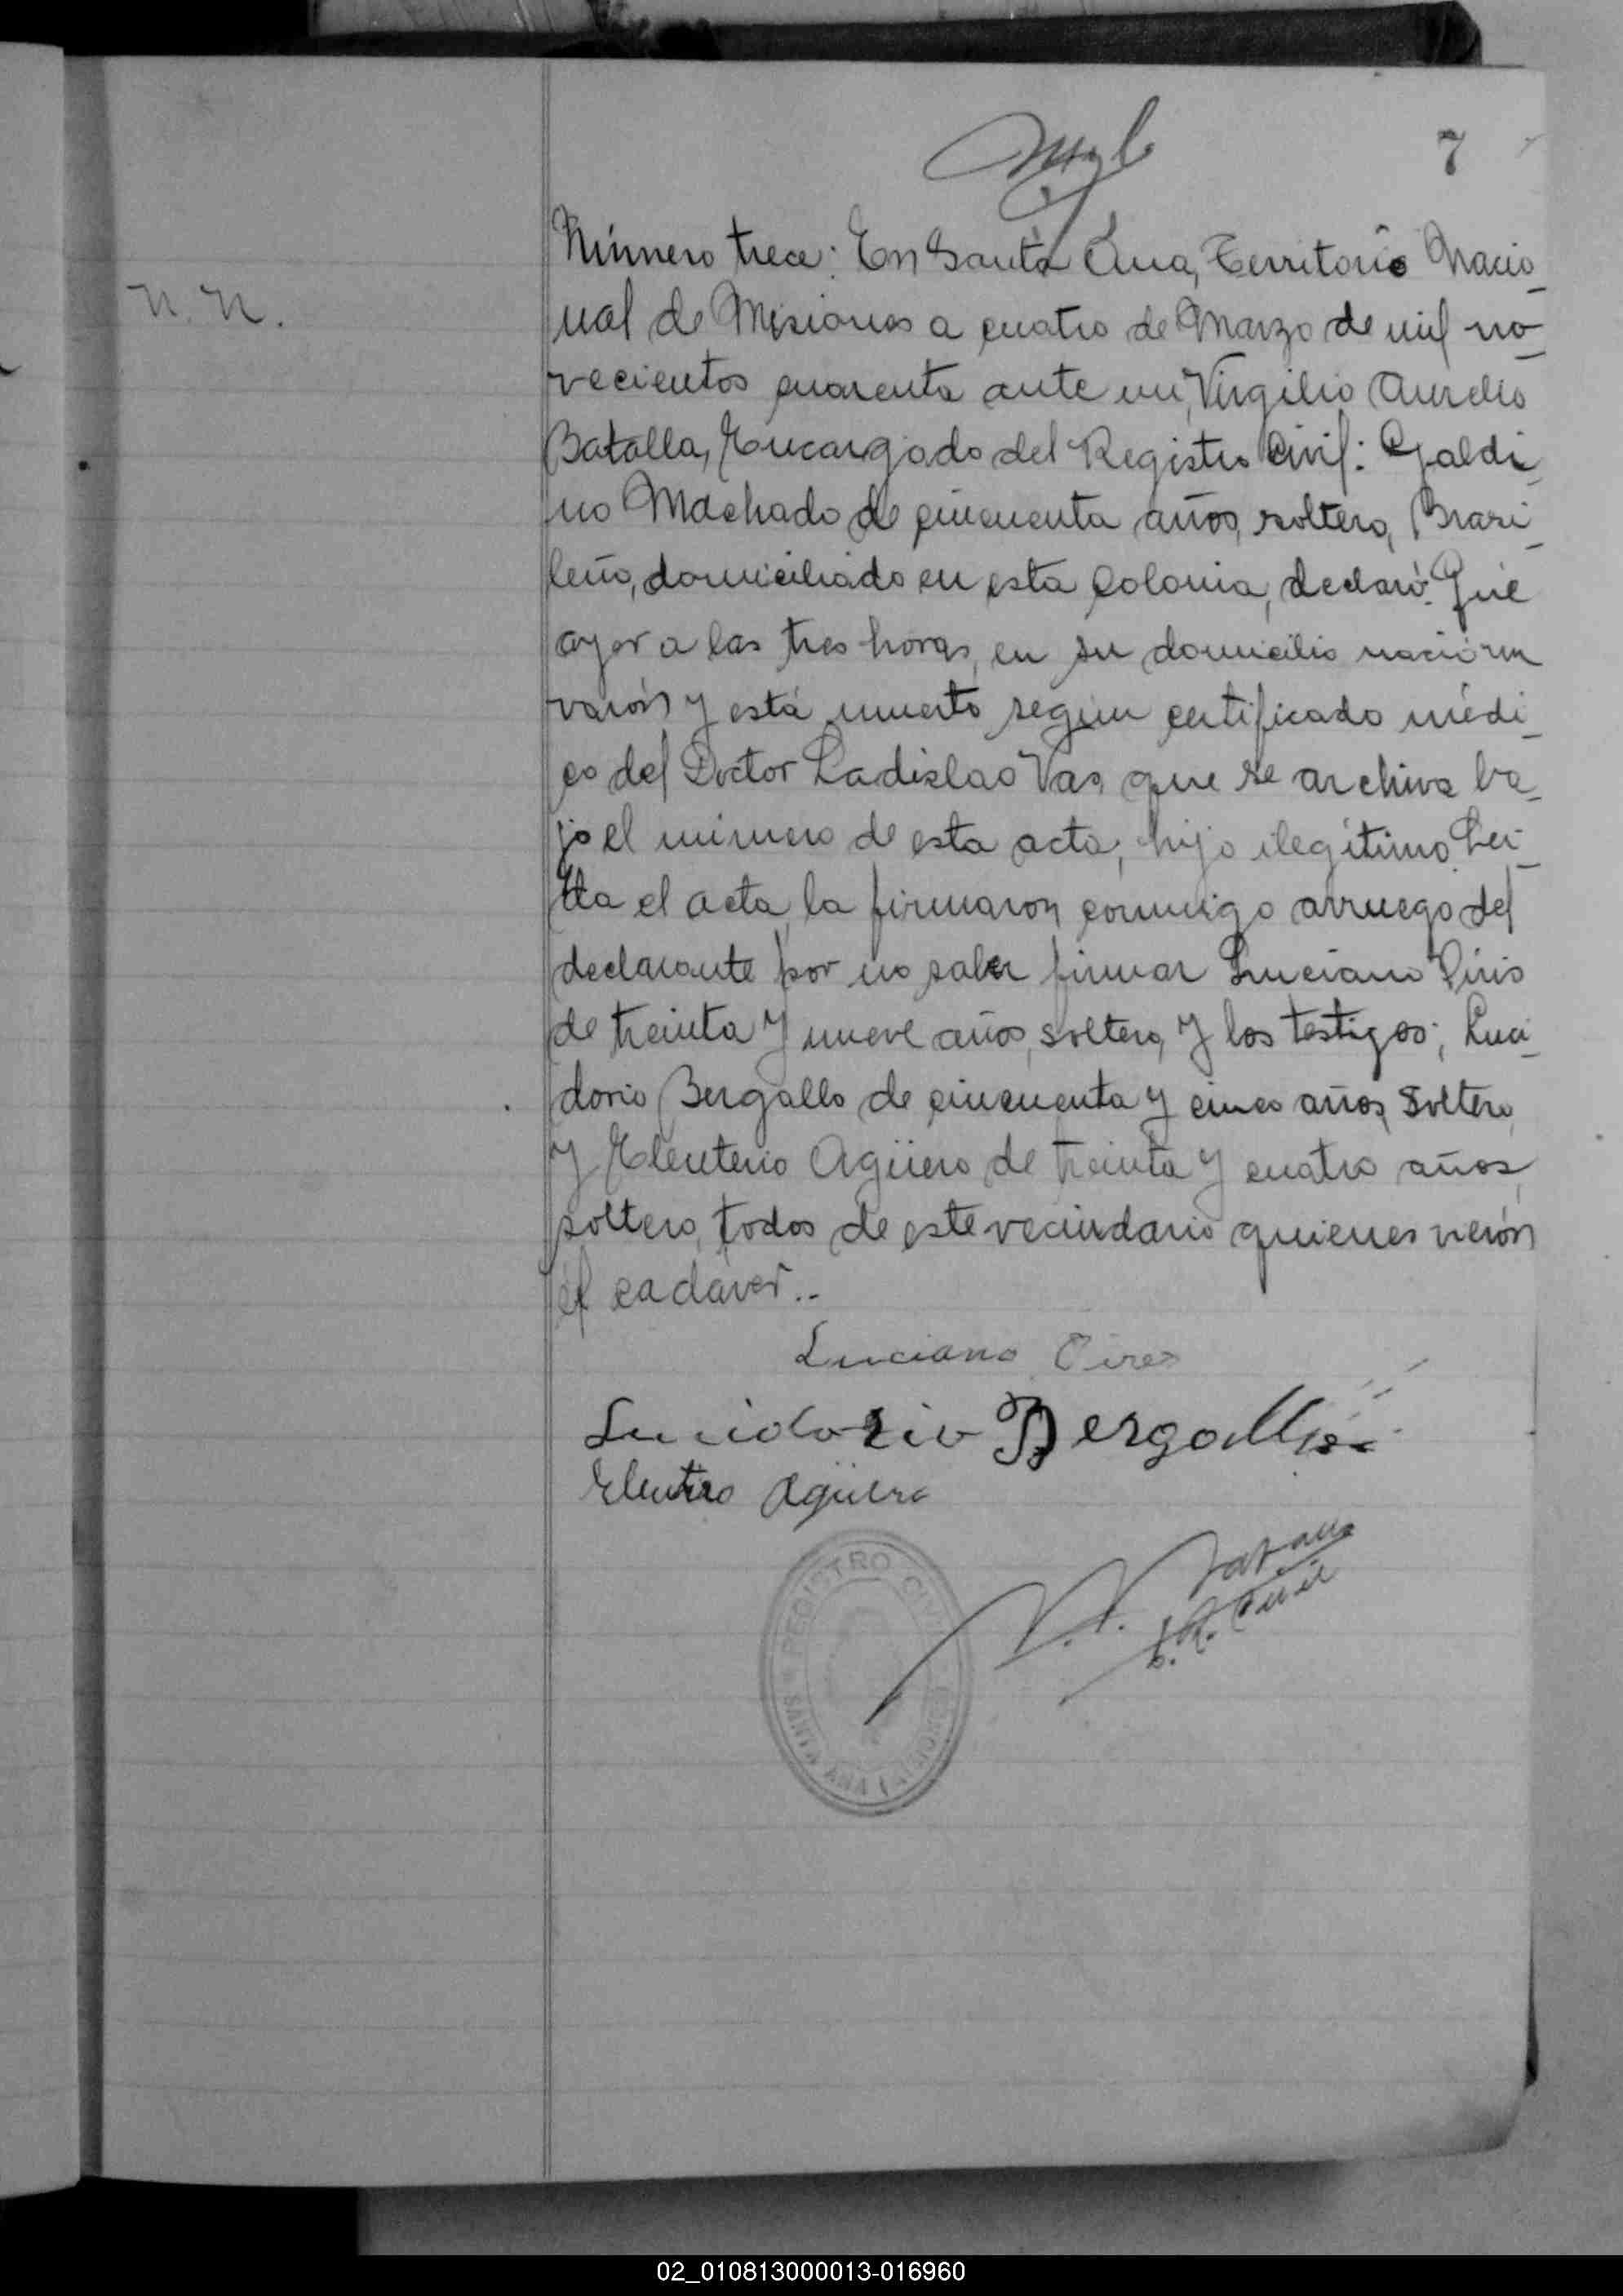 7
N. N.
Número trece: En Santa Ana, Territorio Nacio-
nal de Misiones a cuatro de Marzo de mil no-
vecientos cuarenta ante mi, Virgilio Aurelio
Batalla, Encargado del Registro Civil: Galdi-
no Machado de cincuenta años, soltero, Brasi-
leño, domiciliado en esta Colonia, declaró: Que
ayer a las tres horas, en su domicilio nació un
varón y está muerto según certificado médi-
co del Doctor Ladislao Vas, que se archiva ba-
jo el número de esta acta, hijo ilegítimo. Lei-
da el acta, la firmaron conmigo arruego del
declarante por no saber firmar Luciano Piris
de treinta y nueve años, soltero, y los testigos; Luci-
dorio Bergallo de cincuenta y cinco años, soltero,
y Eleuterio Agüero de treinta y cuatro años,
soltero, todos de este vecindario quienes vierón
el cadáver..
Luciano Pires
Lucidorio Bergallo
Eleuterio Agüero
V. A.
E. R. Civil
REGISTRO CIVIL
SANTA ANA (MISIONES)
02_010813000013-016960